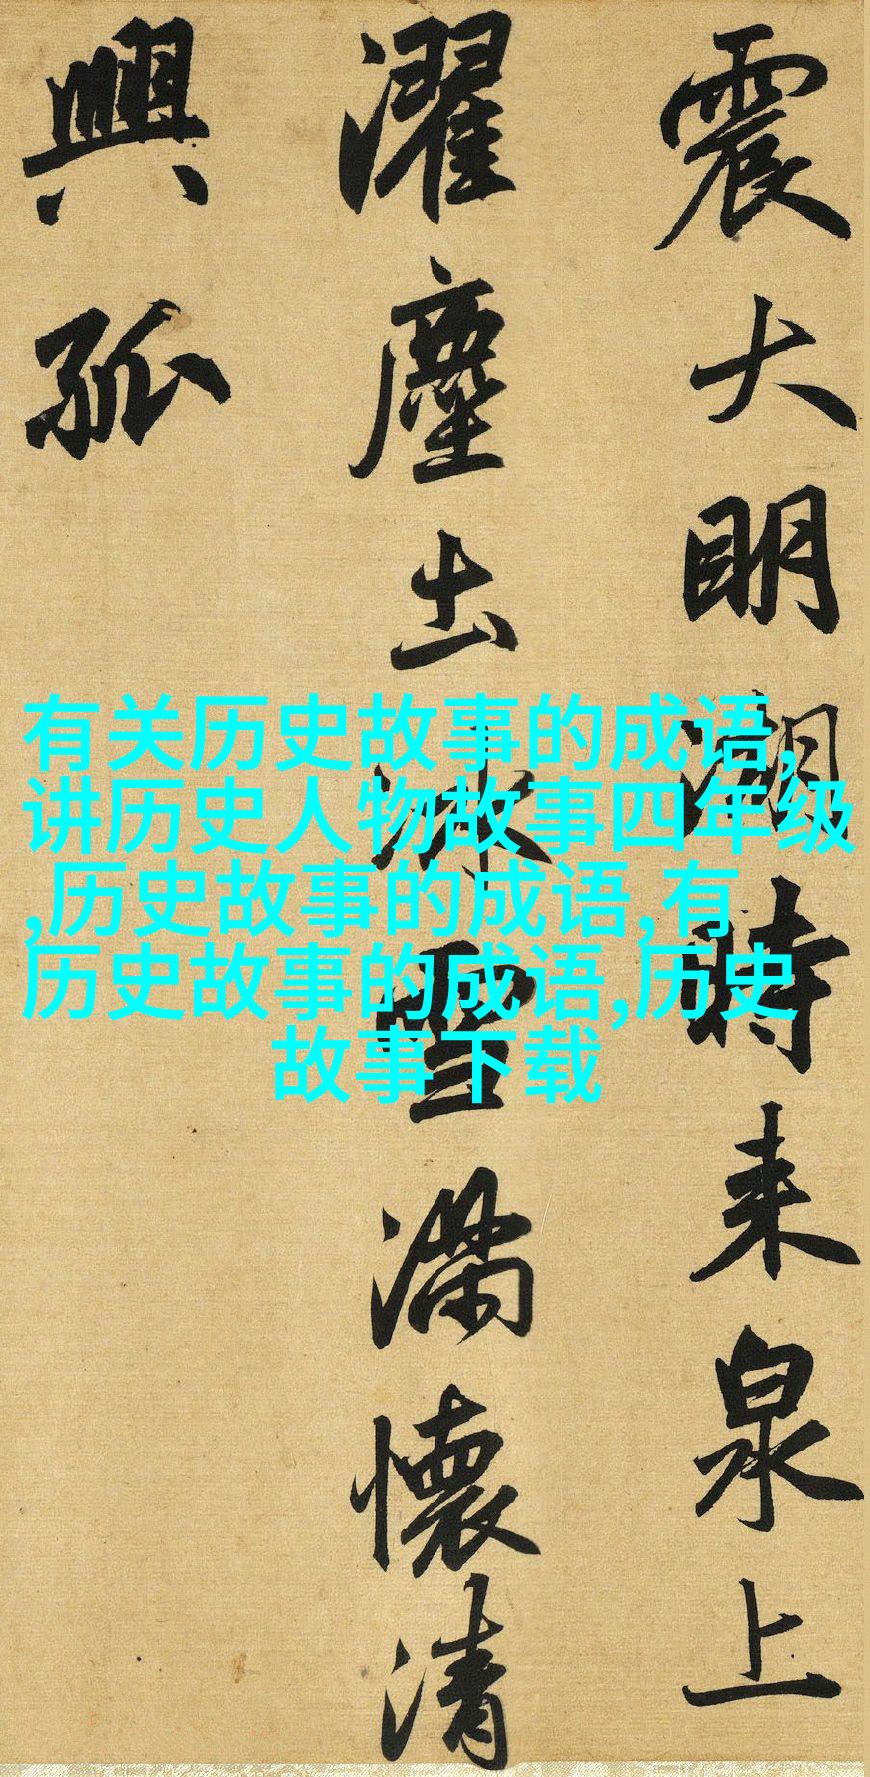 震大明湖時来泉上
濯塵土冰雪滿懷清
興孤
有关历史故事的成语,
讲历史人物故事四年级
,历史故事的成语,有
历史故事的成语,历史
故事下载